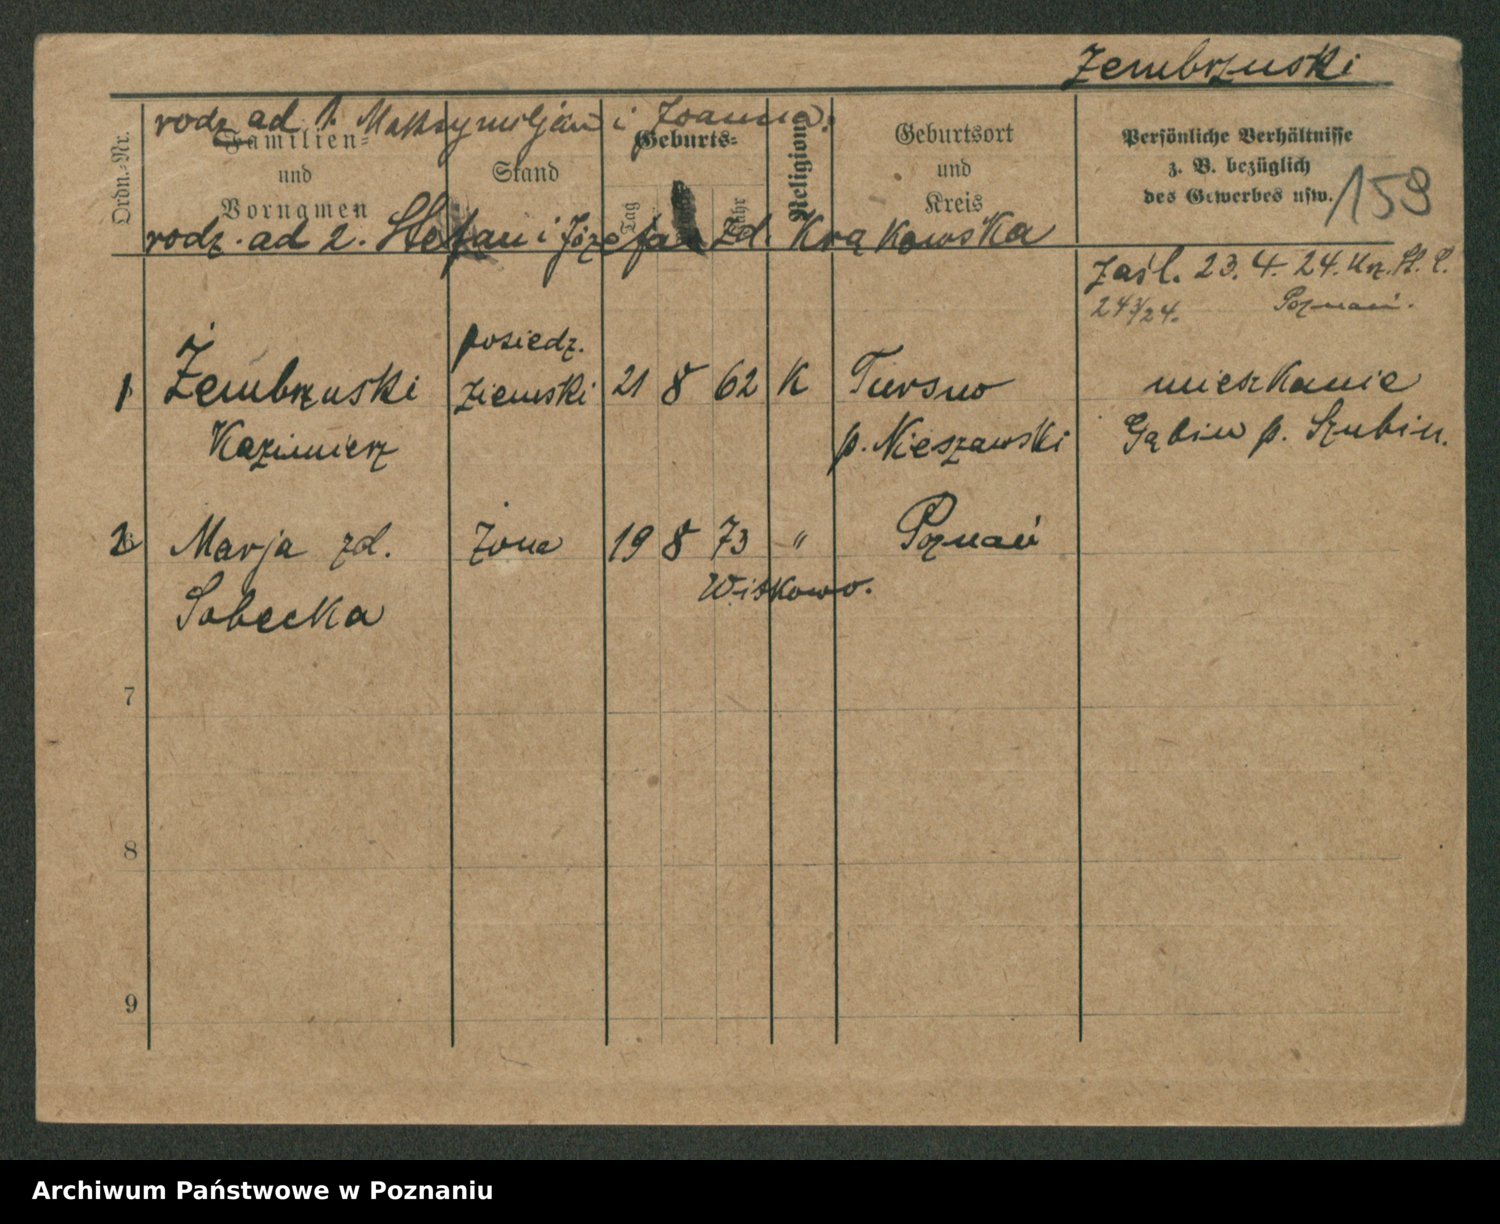 Zembrzuski
rodz ad 1. Maksymiljan i Joanna.
Ordn.-Nr.
Familien-
und
Vornamen
Stand
Geburts-
Tag
Jahr
Religion
Geburtsort
und
Kreis
Persönliche Verhältnisse
z. B. bezüglich
des Gewerbes usw.
159
rodz. ad 2. Stefan i Józefa zd. Krąkowska
zaśl. 23. 4. 24. Urz. St. C.
243/24. Poznań.
1 Żembrzuski posiedz. ziemski 21 8 62 K
Kazimierz
p. Nieszawski
mieszkanie
Gąbin p. Szubin.
2 Marja zd. żona 19 8 73 " Poznań
Sobecka
Witkowo.
7
8
9
Archiwum Państwowe w Poznaniu